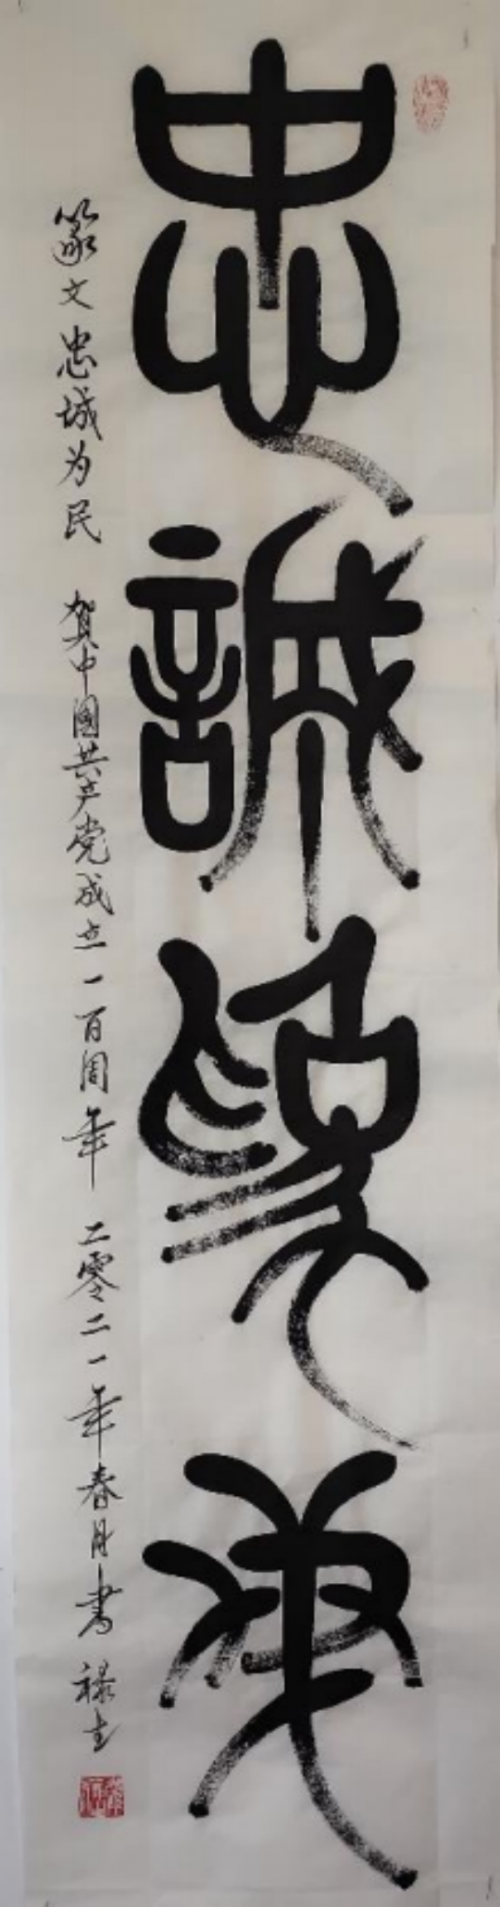 忠誠為民
篆文忠城为民 贺中國共产党成立一百周年 二零二一年春月书 禄立